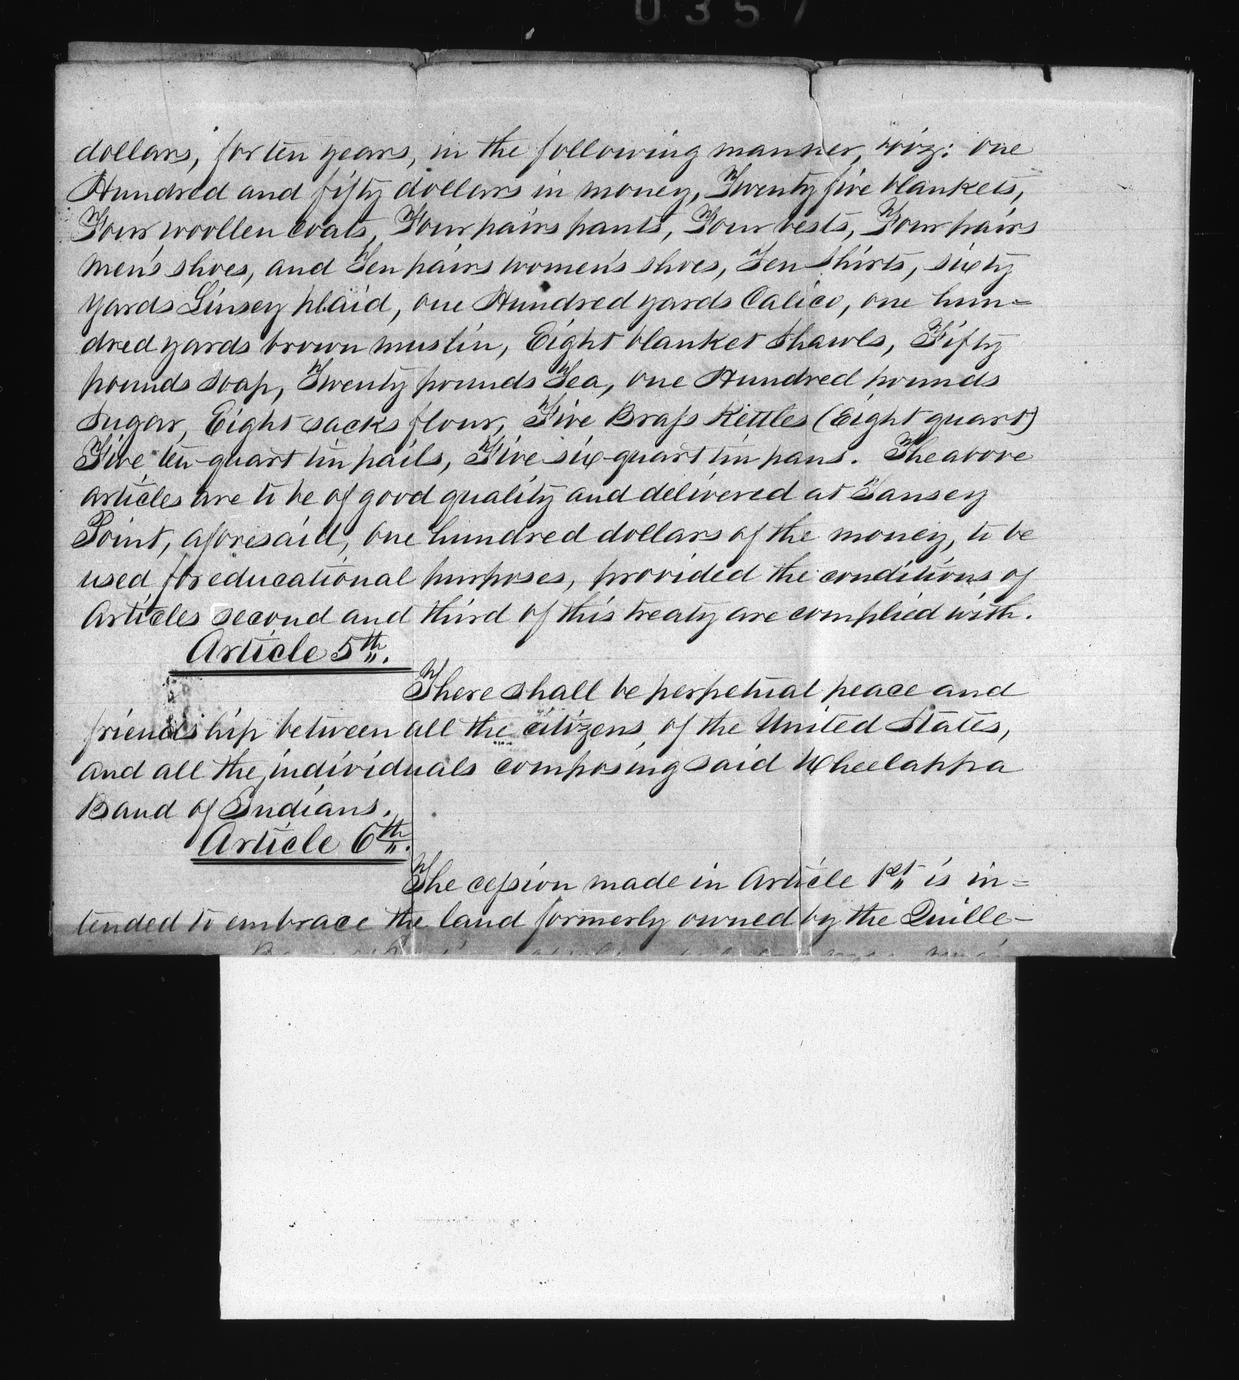 0357
dollars, for ten years, in the following manner, viz: one
Hundred and fifty dollars in money, Twenty five blankets,
Four woollen Coats, Four pairs pants, Four vests, Four pairs
men's shoes, and Ten pairs women's shoes, Ten Shirts, sixty
yards Linsey plaid, one Hundred yards Calico, one hun=
dred yards brown muslin, Eight blanket Shawls, Fifty
pounds Soap, Twenty pounds Tea, one Hundred pounds
Sugar, Eight sacks flour, Five Brass Kettles (Eight quart)
Five ten-quart tin pails, Five six-quart tin pans. The above
articles are to be of good quality and delivered at Tansey
Point, aforesaid, one hundred dollars of the money, to be
used for educational purposes, provided the conditions of
Articles second and third of this treaty are complied with.
Article 5th.
There shall be perpetual peace and
friendship between all the citizens of the United States,
and all the individuals composing said Wheelappa
Band of Indians.
Article 6th.
The cession made in Article 1st is in=
tended to embrace the land formerly owned by the Quille-